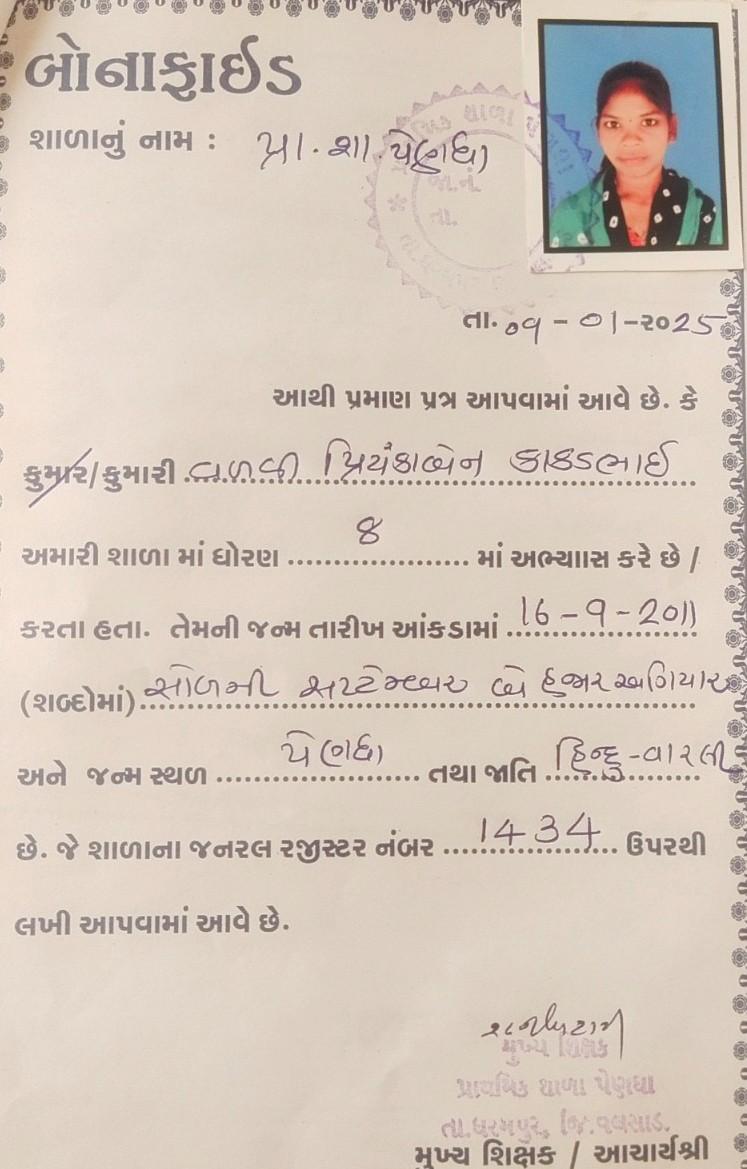 બોનાફાઈડ
શાળાનું નામ : પ્રા. શા. પેણધા
તા. ૦૧-૦1-૨૦25
આથી પ્રમાણ પત્ર આપવામાં આવે છે. કે
કુમાર/કુમારી વળવી પ્રિયંકાબેન કાકડભાઈ
અમારી શાળા માં ધોરણ 8 માં અભ્યાાસ કરે છે /
કરતા હતા. તેમની જન્મ તારીખ આંકડામાં 16-9-2011
(શબ્દોમાં) સોળમી સપ્ટેમ્બર બે હજાર અગિયાર
અને જન્મ સ્થળ પેણધા તથા જાતિ હિન્દુ-વારલી
છે. જે શાળાના જનરલ રજીસ્ટર નંબર 1434 ઉપરથી
લખી આપવામાં આવે છે.
મુખ્ય શિક્ષક
પ્રાથમિક શાળા પેણધા
તા.ધરમપુર, જિ.વલસાડ.
મુખ્ય શિક્ષક / આચાર્યશ્રી